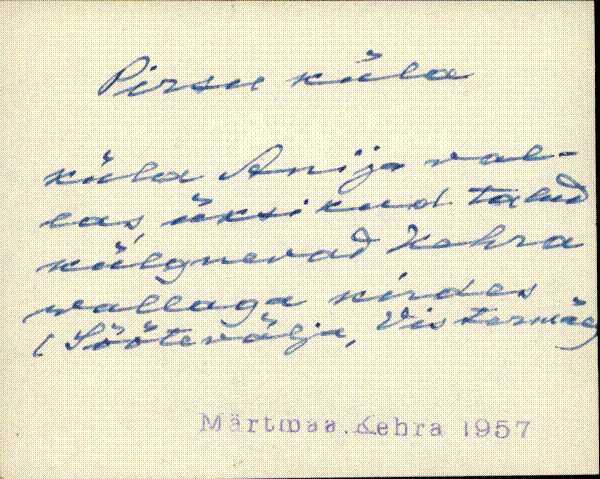 Pirsu küla
küla Anija val-
las, üksikud talud
külgnevad Kehra
vallaga kirdes
(Söötevälja, Vistermäe
Märtmaa.Kehra 1957